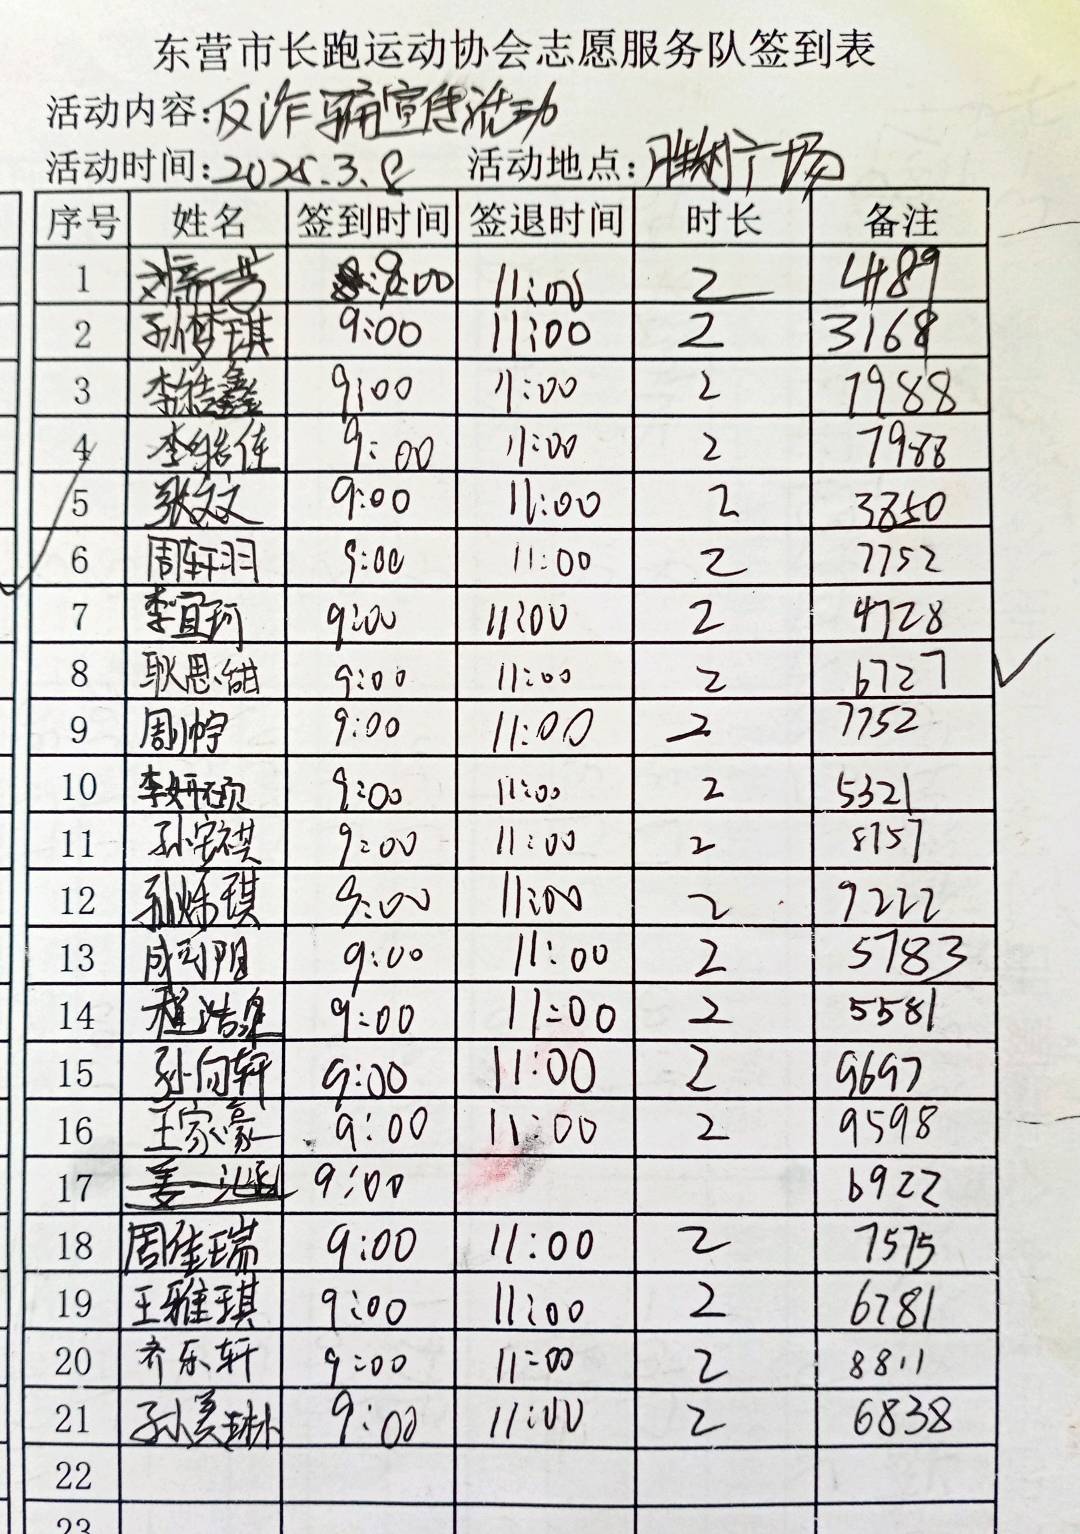 东营市长跑运动协会志愿服务队签到表
活动内容:反诈骗宣传活动
活动时间:2025.3.8 活动地点:胜利广场
序号 姓名 签到时间 签退时间 时长 备注
1 刘新芸 9:00 11:00 2 4189
2 孙梦琪 9:00 11:00 2 3168
3 李浩鑫 9:00 11:00 2 7988
4 李佳 9:00 11:00 2 7988
5 张文文 9:00 11:00 2 3850
6 周轩羽 9:00 11:00 2 7752
7 李宜珂 9:00 11:00 2 4728
8 耿思甜 9:00 11:00 2 6727
9 周帅宇 9:00 11:00 2 7752
10 李妍硕 9:00 11:00 2 5321
11 孙安祺 9:00 11:00 2 8757
12 孙烁琪 9:00 11:00 2 9222
13 9:00 11:00 2 5783
14 程浩 9:00 11:00 2 5581
15 孙向轩 9:00 11:00 2 9697
16 王家豪 9:00 11:00 2 9598
17 姜 9:00 6922
18 周佳瑞 9:00 11:00 2 7575
19 王雅琪 9:00 11:00 2 6781
20 齐乐轩 9:00 11:00 2 8811
21 孙美琳 9:00 11:00 2 6838
22
23